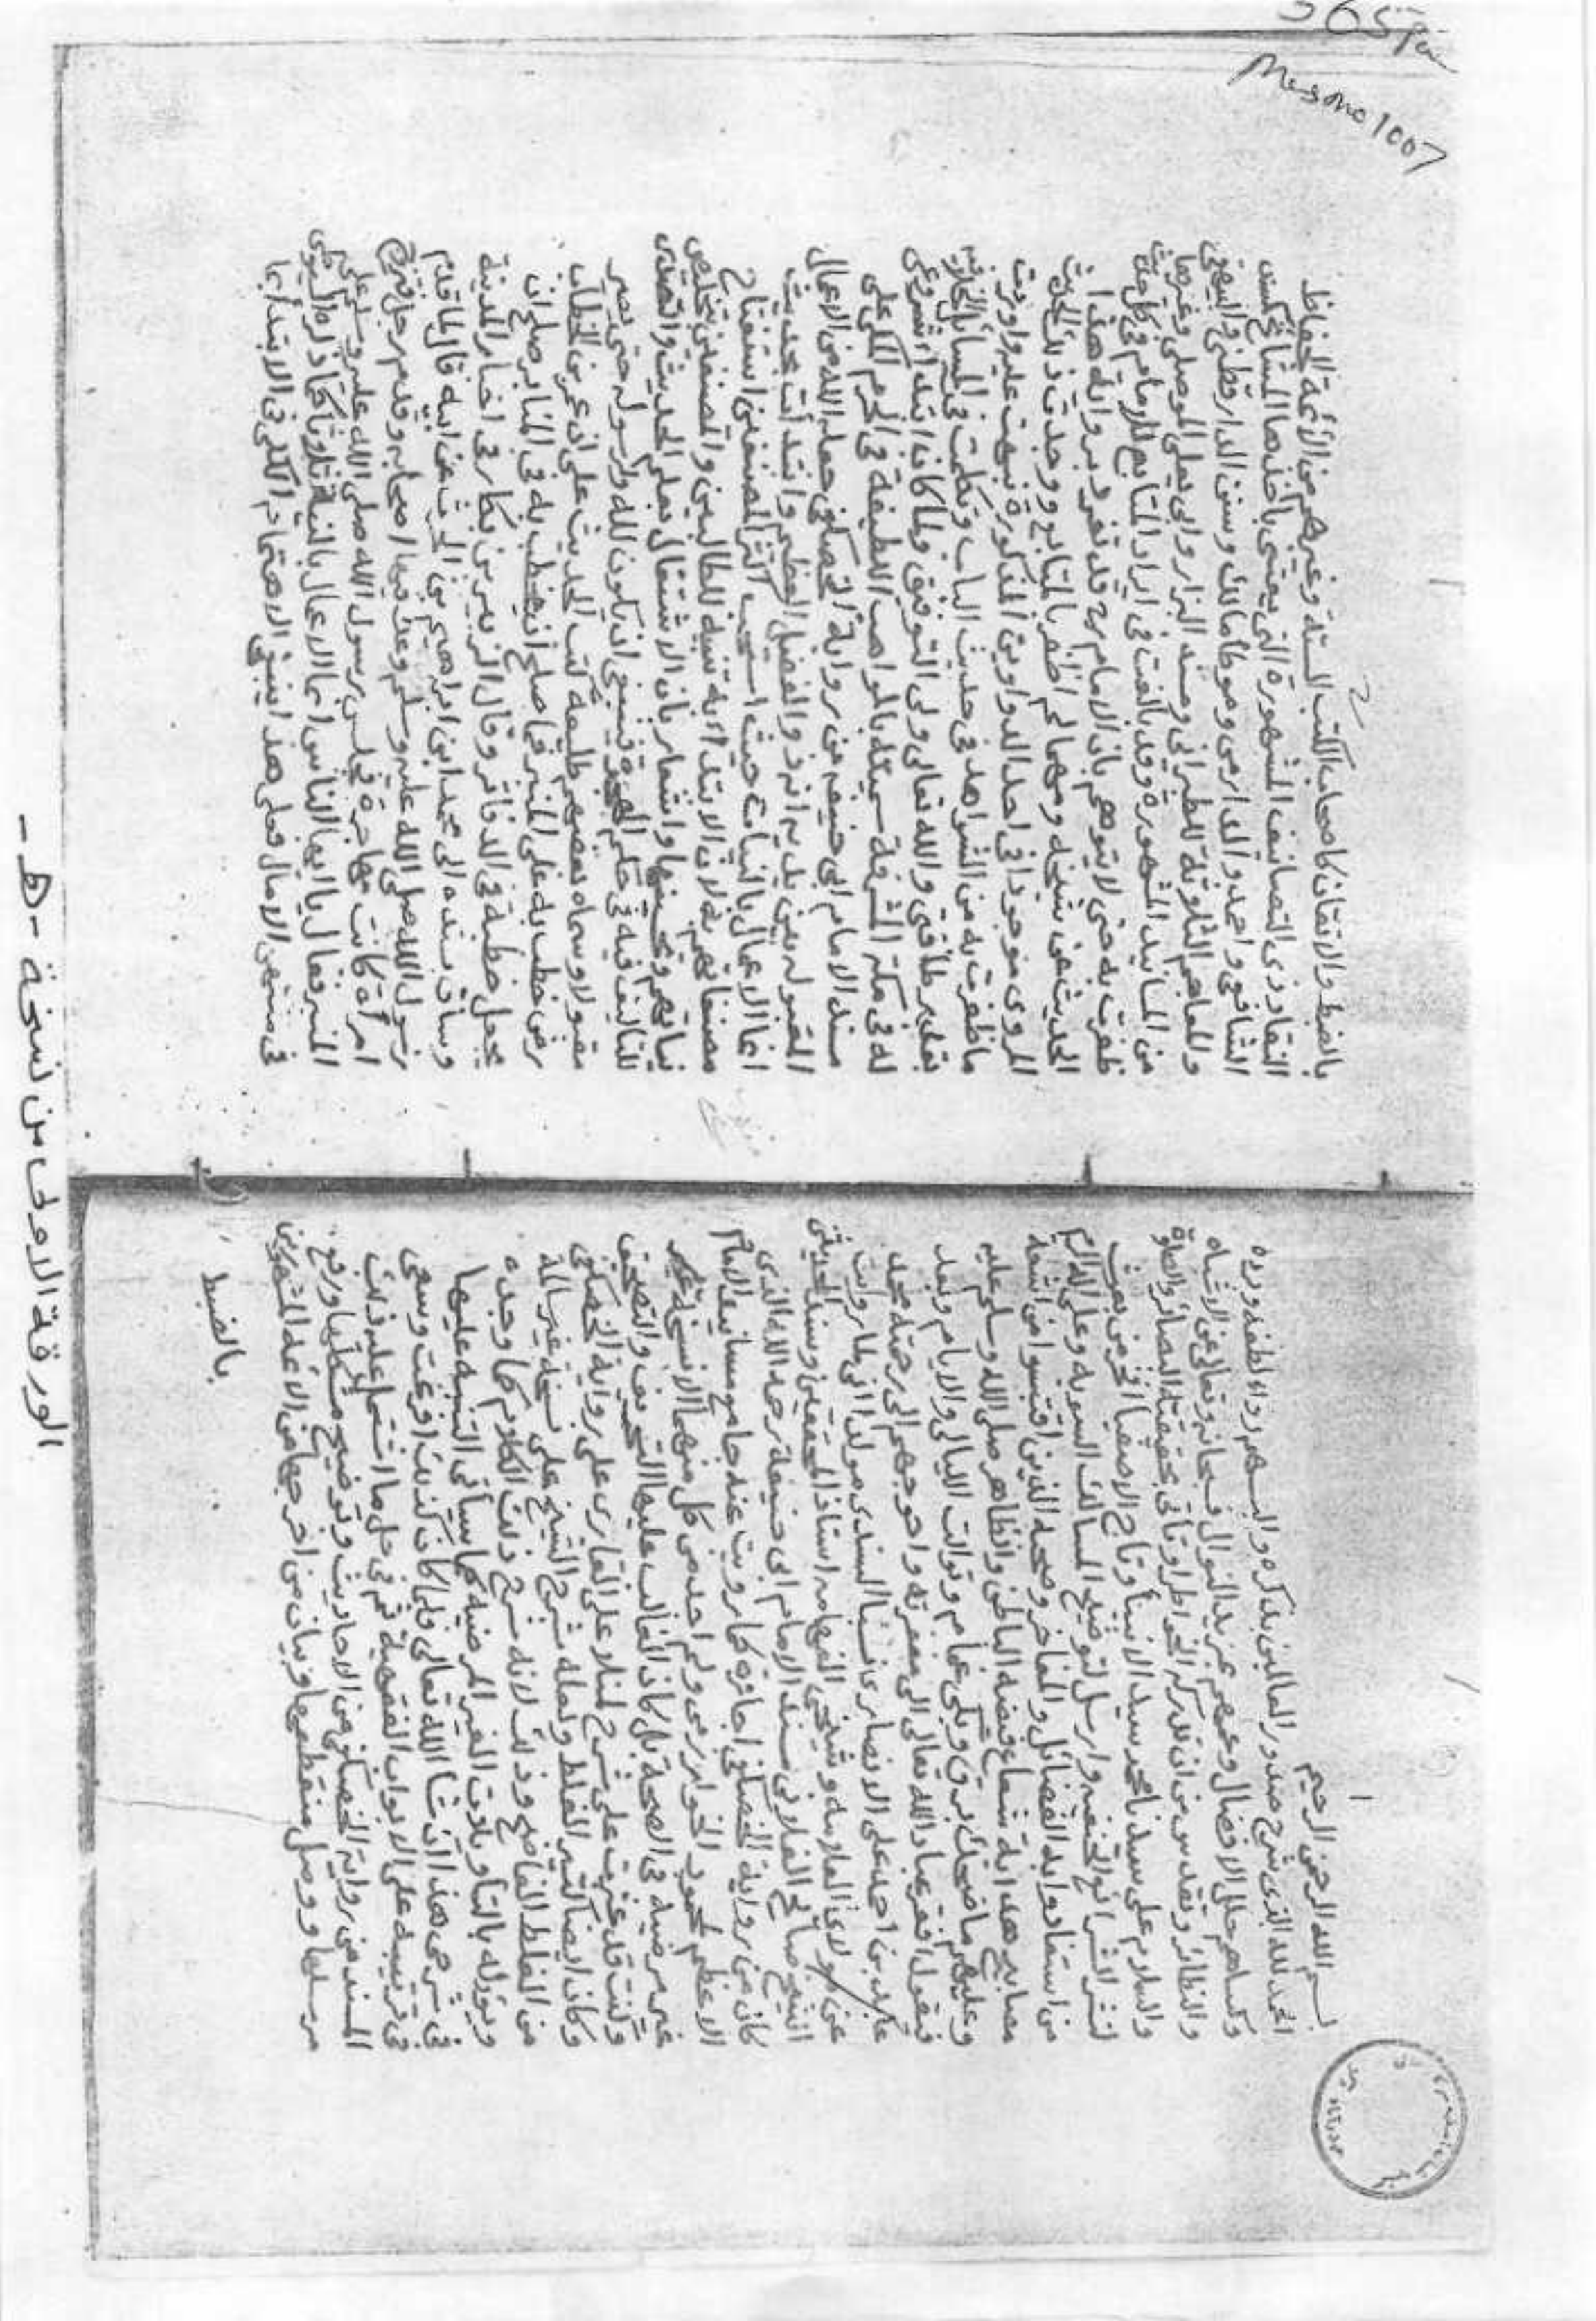 بسم الله الرحمن الرحيم
الحمد لله الذى شرح صدور العالمين بذكره والبسهم رداء لطفه وبره
وكساهم حلل الافضال وعمهم بمزيد النوال فسبحانه وتعالى عن الاشباه
والنظائر وتقدس من ان تدركه الخواطر او تأتى بحقيقته البصائر والصلوة
والسلام على سيدنا محمد سيد الانبيا وتاج الاصفيا افخر من بعث
لنشر الشرائع الحنفيه وارسل لتوضيح المسالك السويه وعلى اله الكرام
من استفادوا به الفضائل والمفاخر وصحبه الذين اقتبسوا من اشعة
مصابيح هدايه شعاع فيضه الباطن والظاهر صلى الله وسلم عليه
وعليهم ما ضحك برق وبكى غمام وتوالت الليالى والايام وبعد
فيقول افقر عباد الله تعالى الى مغفرته واحوجهم الى رحمته محمد
عابد بن احمد على الانصارى نسبا السندى مولدا انى لما رويت
عن مولاى العلامه وشيخى الفهامه استاذ المحققين وسند المدققين
الشيخ صالح الفلانى مسند الامام ابى حنيفة رحمه الله الذى
كان من رواية الحصكفى اجازه كما رويت عنه جامع مسانيد الامام
الاعظم لمحمود الخوارزمى ولم اجد من كل منهما الا نسخة غير
غير مرضيه فى الصحة بل كان الغالب عليها التحريف والتصحيف
وكنت قد عثرت على شرح لملا على القارى على رواية الحصكفى
وكان ايضا كثير الغلط ولعله شرح الشيخ على نسخة غير سالمة
من الغلط الفاحش وذلك لانه شرح ذلك الكلام كما وجده
ويؤوله بالتأويلات الغير المرضيه كما سيأتى التنبيه عليها
فى شرحى هذا ان شا الله تعالى فلما كان كذلك افرغت وسعى
فى ترتيبه على الابواب الفقهية ثم فى حل ما اشتمل عليه ذلك
المسند من رواية الحصكفى من الاحاديث وتوضيح مشكلها ورفع
مرسلها ووصل منقطعها وبيان من اخرجها من الائمه المشهورين
بالضبط
بالضبط والاتقان كاصحاب الكتب الستة وغيرهم من الائمة الحفاظ
النقاد ذوى التصانيف المشهورة التى يعتنى باخذها المشايخ كمسند
الشافعى واحمد والدارمى وموطأ مالك وسنن الدارقطنى والبيهقى
والمعاجم الثلاثة للطبرانى ومسند البزار وابى يعلى الموصلى وغيرها
من المسانيد المشهورة وقد بالغت فى ايراد المتابع للامام فى كل حديث
ظفرت به حتى لا يتوهم بان الامام رح قد تفرد برواية هذا
الحديث عن شيخه ومهما لم اظفر بالمتابع ووجدت ذلك الحديث
المروى موجودا فى احد الدواوين المذكورة نبهت عليه واوردت
ما ظفرت به من الشواهد فى حديث الباب وتكلمت فى المسائل الخلافيه
بقدر طاقتى والله تعالى ولى التوفيق ولما كان ابتداء شروعى
له فى مكة المشرفة سميته بالمواهب اللطيفة فى الحرم المكى على
مسند الامام ابى حنيفه من رواية الحصكفى جعله الله من الاعمال
المقبوله بمنه بين يديه انه ذو الفضل العظيم وابتدأت بحديث
انما الاعمال بالنيات حيث استحب اكثر المصنفين استفتاح
مصنفاتهم به لان الابتداء به تنبيه للطالبين والمصنفين بتخليص
نياتهم وتحسينها واشعار بان الاشتغال بعلى الحديث والتصدى
للتاليف فيه فى حكم الهجرة فينبغى ان يكون لله ولرسوله حتى يصير
مقبولا وسماه بعضهم طليعة كتب الحديث على ان عمر بن الخطاب
رض خطب به على المنبر فما صلح ان يخطب به فى المنابر صلح ان
يجعل خطبة فى الدفاتر وقال الزبير بن بكار فى اخبار المدينة
وساق سنده الى محمد ابن ابراهيم بن الحارث عن ابيه قال لما قدم
رسول الله صلى الله عليه وسلم وعك فيها اصحابه وقدم رجل فتزوج
امرأة كانت مهاجرة فجلس رسول الله صلى الله عليه وسلم على
المنبر فقال يا ايها الناس انما الاعمال بالنية ثلاثا كما ذكره السيوطى
فى منتهى الامال فعلى هذا ينبغى الاهتمام الكلى فى الابتداء بها
الورقة الاولى من نسخة - ط -
Mess no 1007